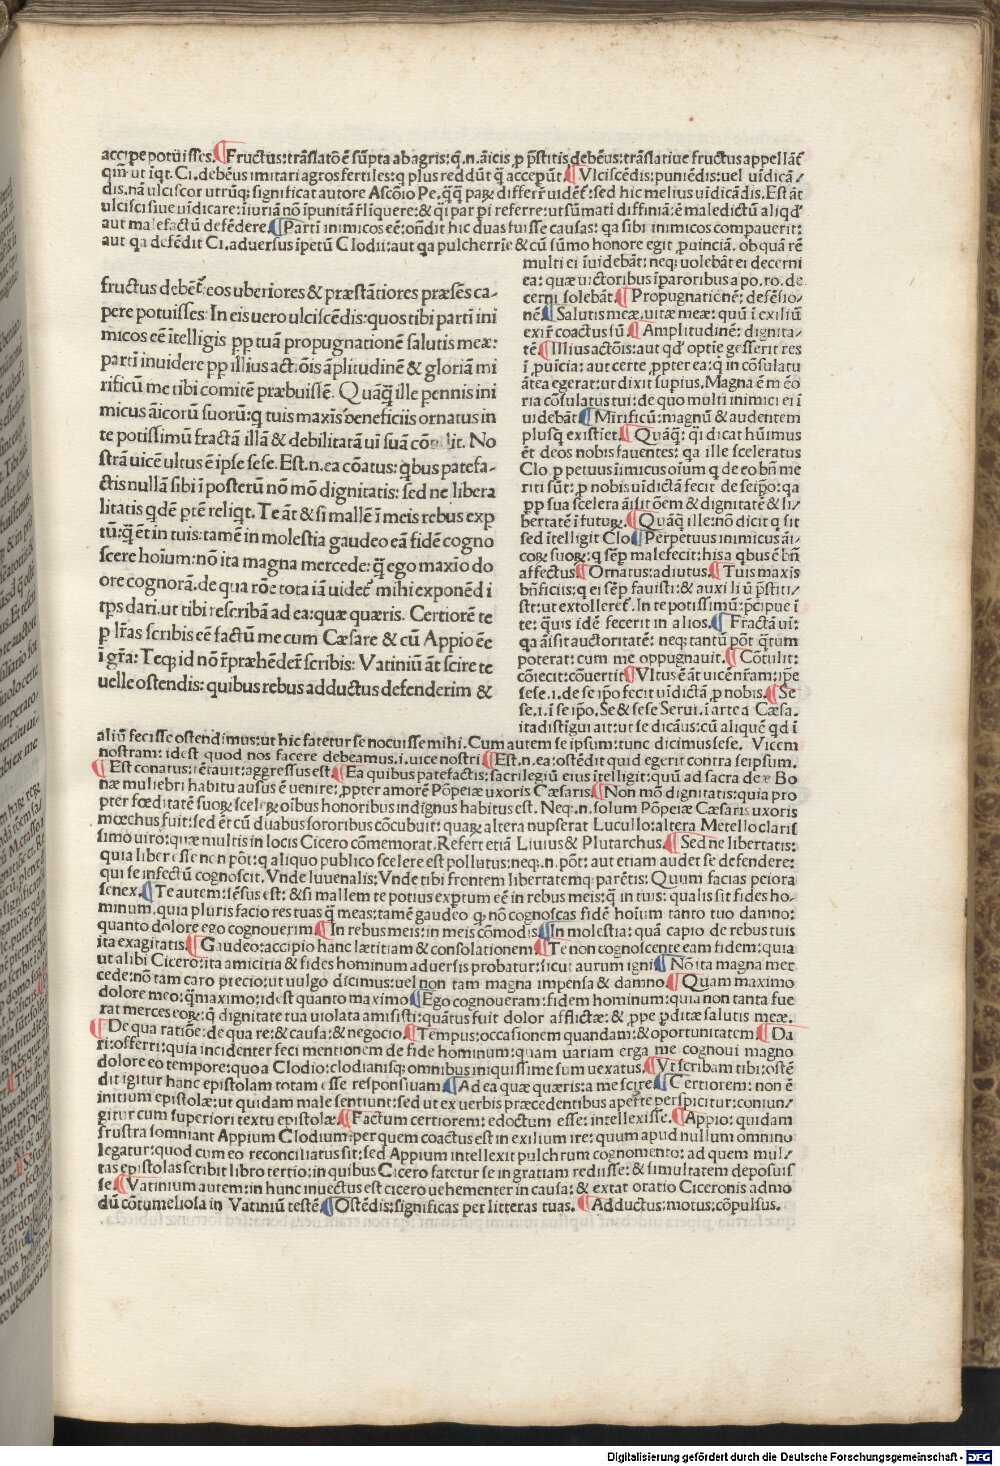 accipe potuisses. ¶Fructus: trãslatõ ẽ sũpta ab agris: q̃.n. ãicis p̱ p̃stitis debẽus: trãslatiue fructus appellãt̃
qm̃ ut ĩqt. Ci. debẽus imitari agros fertiles: q plus reddũt q̃ accepũt. ¶Vlciscẽdis: puniẽdis: uel uĩdicã⸗
dis. nã ulciscor utrũq; significat autore Ascõio Pe. q̃q̃ paꝝ differr̃ uidet̃: sed hic melius uĩdicãdis. Est ãt
ulcisci siue uĩdicare: iiuriã nõ ĩpunitã r̃liquere: & q̃i par pi referre: ut sũmati diffiniã: ẽ maledictũ aliqd̃
aut malefactũ defẽdere. ¶Partĩ inimicos eẽ: oñdit hic duas fuisse causas: qa sibi inimicos compauerit:
aut qa defẽdit Ci. aduersus ĩpetũ Clodii: aut qa pulcherrĩe & cũ sũmo honore egit p̱uinciã. ob quã rẽ
multi ei ĩuidebãt: neq; uolebãt ei decerni
ea: quæ uictoribus ĩparoribus a po. ro. de
cerni solebãt. ¶Propugnationẽ: defẽsio⸗
nẽ. ¶Salutis meæ. uitæ meæ: quũ ĩ exiliũ
exir̃ coactus sũ. ¶Amplitudinẽ: dignita⸗
tẽ. ¶Illius actõis: aut qd̃ optĩe gesserit res
ĩ p̱uicia: aut certe p̱pter ea: q̃ in cõsulatu
ãtea egerat: ut dixit supius. Magna ẽ mẽo
ria cõsulatus tui: de quo multi inimici ei ĩ
uidebãt. ¶Mirificũ: magnũ & audentem
plusq̃ existĩet. ¶Quãq̃: q̃i dicat hũimus
ẽt deos nobis fauentes: qa ille sceleratus
Clo. p̱petuus iimicus oĩum q de eo bñ me
riti sũt: p̱ nobis uĩdictã fecit de seip̃o: qa
p̱p sua scelera ãisit õem & dignitatẽ & li⸗
bertatẽ ĩ futuꝝ. ¶Quãq̃ ille: nõ dicit q sit
sed ĩtelligit Clo. ¶Perpetuus inimicus ãi⸗
coꝝ suoꝝ: q sẽp malefecit: his a qbus ẽ bñ
affectus. ¶Ornatus: adiutus. ¶Tuis maxis
bñficiis: q ei sẽp fauisti: & auxiliũ p̃stiti⸗
sti: ut extolleret̃. In te potissimũ: p̃cipue ĩ
te: q̃uis idẽ fecerit in alios. ¶Fractã uĩ:
qa ãisit auctoritatẽ: neq; tantũ põt q̃tum
poterat: cum me oppugnauit. ¶Cõtulit:
cõiecit: cõuertit. ¶Vltus ẽ ãt uicẽ nr̃am: ip̃e
sese. i. de se ip̃o fecit uĩdictã p̱ nobis. ¶Se
se. i. ĩ se ip̃o. Se & sese Serui. ĩ arte a Cæsa.
ita distiguĩ ait: ut se dicãus: cũ aliquẽ qd ĩ
fructus debẽt: eos uberiores & præstãtiores præsẽs ca⸗
pere potuisses. In eis uero ulciscẽdis: quos tibi partĩ ini
micos eẽ ĩtelligis p̱p tuã propugnationẽ salutis meæ:
partĩ inuidere p̱p illius actiõis ãplitudinẽ & gloriã mi
rificũ me tibi comitẽ præbuissẽ. Quãq̃ ille pennis ini
micus ãicorũ suorũ: q tuis maxis beneficiis ornatus in
te potissimũ fractã illã & debilitatã uĩ suã cõtulit. No
strã uicẽ ultus ẽ ipse sese. Est.n. ea cõatus: qbus patefa⸗
ctis nullã sibi ĩ posterũ nõ mõ dignitatis: sed ne libera
litatis qdẽ ptẽ reliqt. Te ãt & si mallẽ ĩ meis rebus exp
tũ: q̃ ẽt in tuis: tamẽ in molestia gaudeo eã fidẽ cogno
scere hoium: nõ ita magna mercede: q̃ ego maxio do
ore cognorã. de qua rõe tota iã uidet̃ mihi exponẽd i
tp̃s dari. ut tibi rescribã ad ea: quæ quæris. Certiorẽ te
p lr̃as scribis eẽ factũ mecum Cæsare & cũ Appio eẽ
ĩ gr̃a: Teq; id nõ r̃prahẽder̃ scribis: Vatiniũ ãt scire te
uelle ostendis: quibus rebus adductus defenderim &
aliũ fecisse ostendimus: ut hic fatetur se nocuisse mihi. Cum autem se ipsum: tunc dicimus sese. Vicem
nostram: id est quod nos facere debeamus. i. uice nostri. ¶Est.n. ea: ostẽdit quid egerit contra seipsum.
¶Est conatus: tẽtauit: aggressus est. ¶Ea quibus patefactis: sacrilegiũ eius ĩtelligit: quũ ad sacra deæ Bo
næ muliebri habitu ausus ẽ uenire: p̱pter amorẽ Põpeiæ uxoris Cæsaris. ¶Non mõ dignitatis: quia pro
pter fœditatẽ suoꝝ sceleꝝ oĩbus honoribus indignus habitus est. Neq;.n. solum Põpeiæ Cæsaris uxoris
mœchus fuit: sed ẽt cũ duabus sororibus cõcubuit: quaꝝ altera nupserat Lucullo: altera Metello claris
simo uiro: quæ multis in locis Cicero cõmemorat. Refert etiã Liuius & Plutarchus. ¶Sed ne libertatis:
quia liber esse non põt: q aliquo publico scelere est pollutus: neq;.n. põt: aut etiam audet se defendere:
qui se infectũ cognoscit. Vnde Iuuenalis: Vnde tibi frontem libertatemq; parẽtis: Quum facias peiora
senex. ¶Te autem: sẽsus est: & si mallem te potius exptum eẽ in rebus meis: q̃ in tuis: qualis sit fides ho⸗
minum. quia pluris facio res tuas q̃ meas: tamẽ gaudeo q̱ nõ cognoscas fidẽ hoĩum tanto tuo damno:
quanto dolore ego cognouerim. ¶In rebus meis: in meis cõmodis. ¶In molestia: quã capio de rebus tuis
ita exagitatis. ¶Gaudeo: accipio hanc lætitiam & consolationem. ¶Te non cognoscente eam fidem: quia
ut alibi Cicero: ita amicitia & fides hominum aduersis probatur: sicut aurum igni. ¶Nõ ita magna mer
cede: nõ tam caro precio: ut uulgo dicimus: uel non tam magna impensa & damno. ¶Quam maximo
dolore meo: q̃ maximo: id est quanto maximo. ¶Ego cognoueram: fidem hominum: quia non tanta fue
rat merces eoꝝ: q̃ dignitate tua uiolata amisisti: quãtus fuit dolor afflictæ: & p̱pe p̱ditæ salutis meæ.
¶De qua ratiõe: de qua re: & causa: & negocio. ¶Tempus: occasionem quandam: & oportunitatem. ¶Da
ri: offerri: quia incidenter feci mentionem de fide hominum: quam uariam erga me cognoui magno
dolore eo tempore: quo a Clodio: clodianisq; omnibus iniquissime sum uexatus. ¶Vt scribam tibi: ostẽ
dit igitur hanc epistolam totam esse responsiuam. ¶Ad ea quæ quæris: a me scire. ¶Certiorem: non ẽ
initium epistolæ: ut quidam male sentiunt: sed ut ex uerbis præcedentibus aperte perspicitur: coniun⸗
gitur cum superiori textu epistolæ. ¶Factum certiorem: edoctum esse: intellexisse. ¶Appio: quidam
frustra somniant Appium Clodium: per quem coactus est in exilium ire: quum apud nullum omnino
legatur: quod cum eo reconciliatus sit: sed Appium intellexit pulchrum cognomento: ad quem mul⸗
tas epistolas scribit libro tertio: in quibus Cicero fatetur se in gratiam rediisse: & simultatem deposuis
se. ¶Vatinium autem: in hunc inuectus est cicero uehementer in causa: & extat oratio Ciceronis admo
dũ cõtumeliosa in Vatiniũ testẽ. ¶Ostẽdis: significas per litteras tuas. ¶Adductus: motus: cõpulsus.
Digitalisierung gefördert durch die Deutsche Forschungsgemeinschaft - DFG